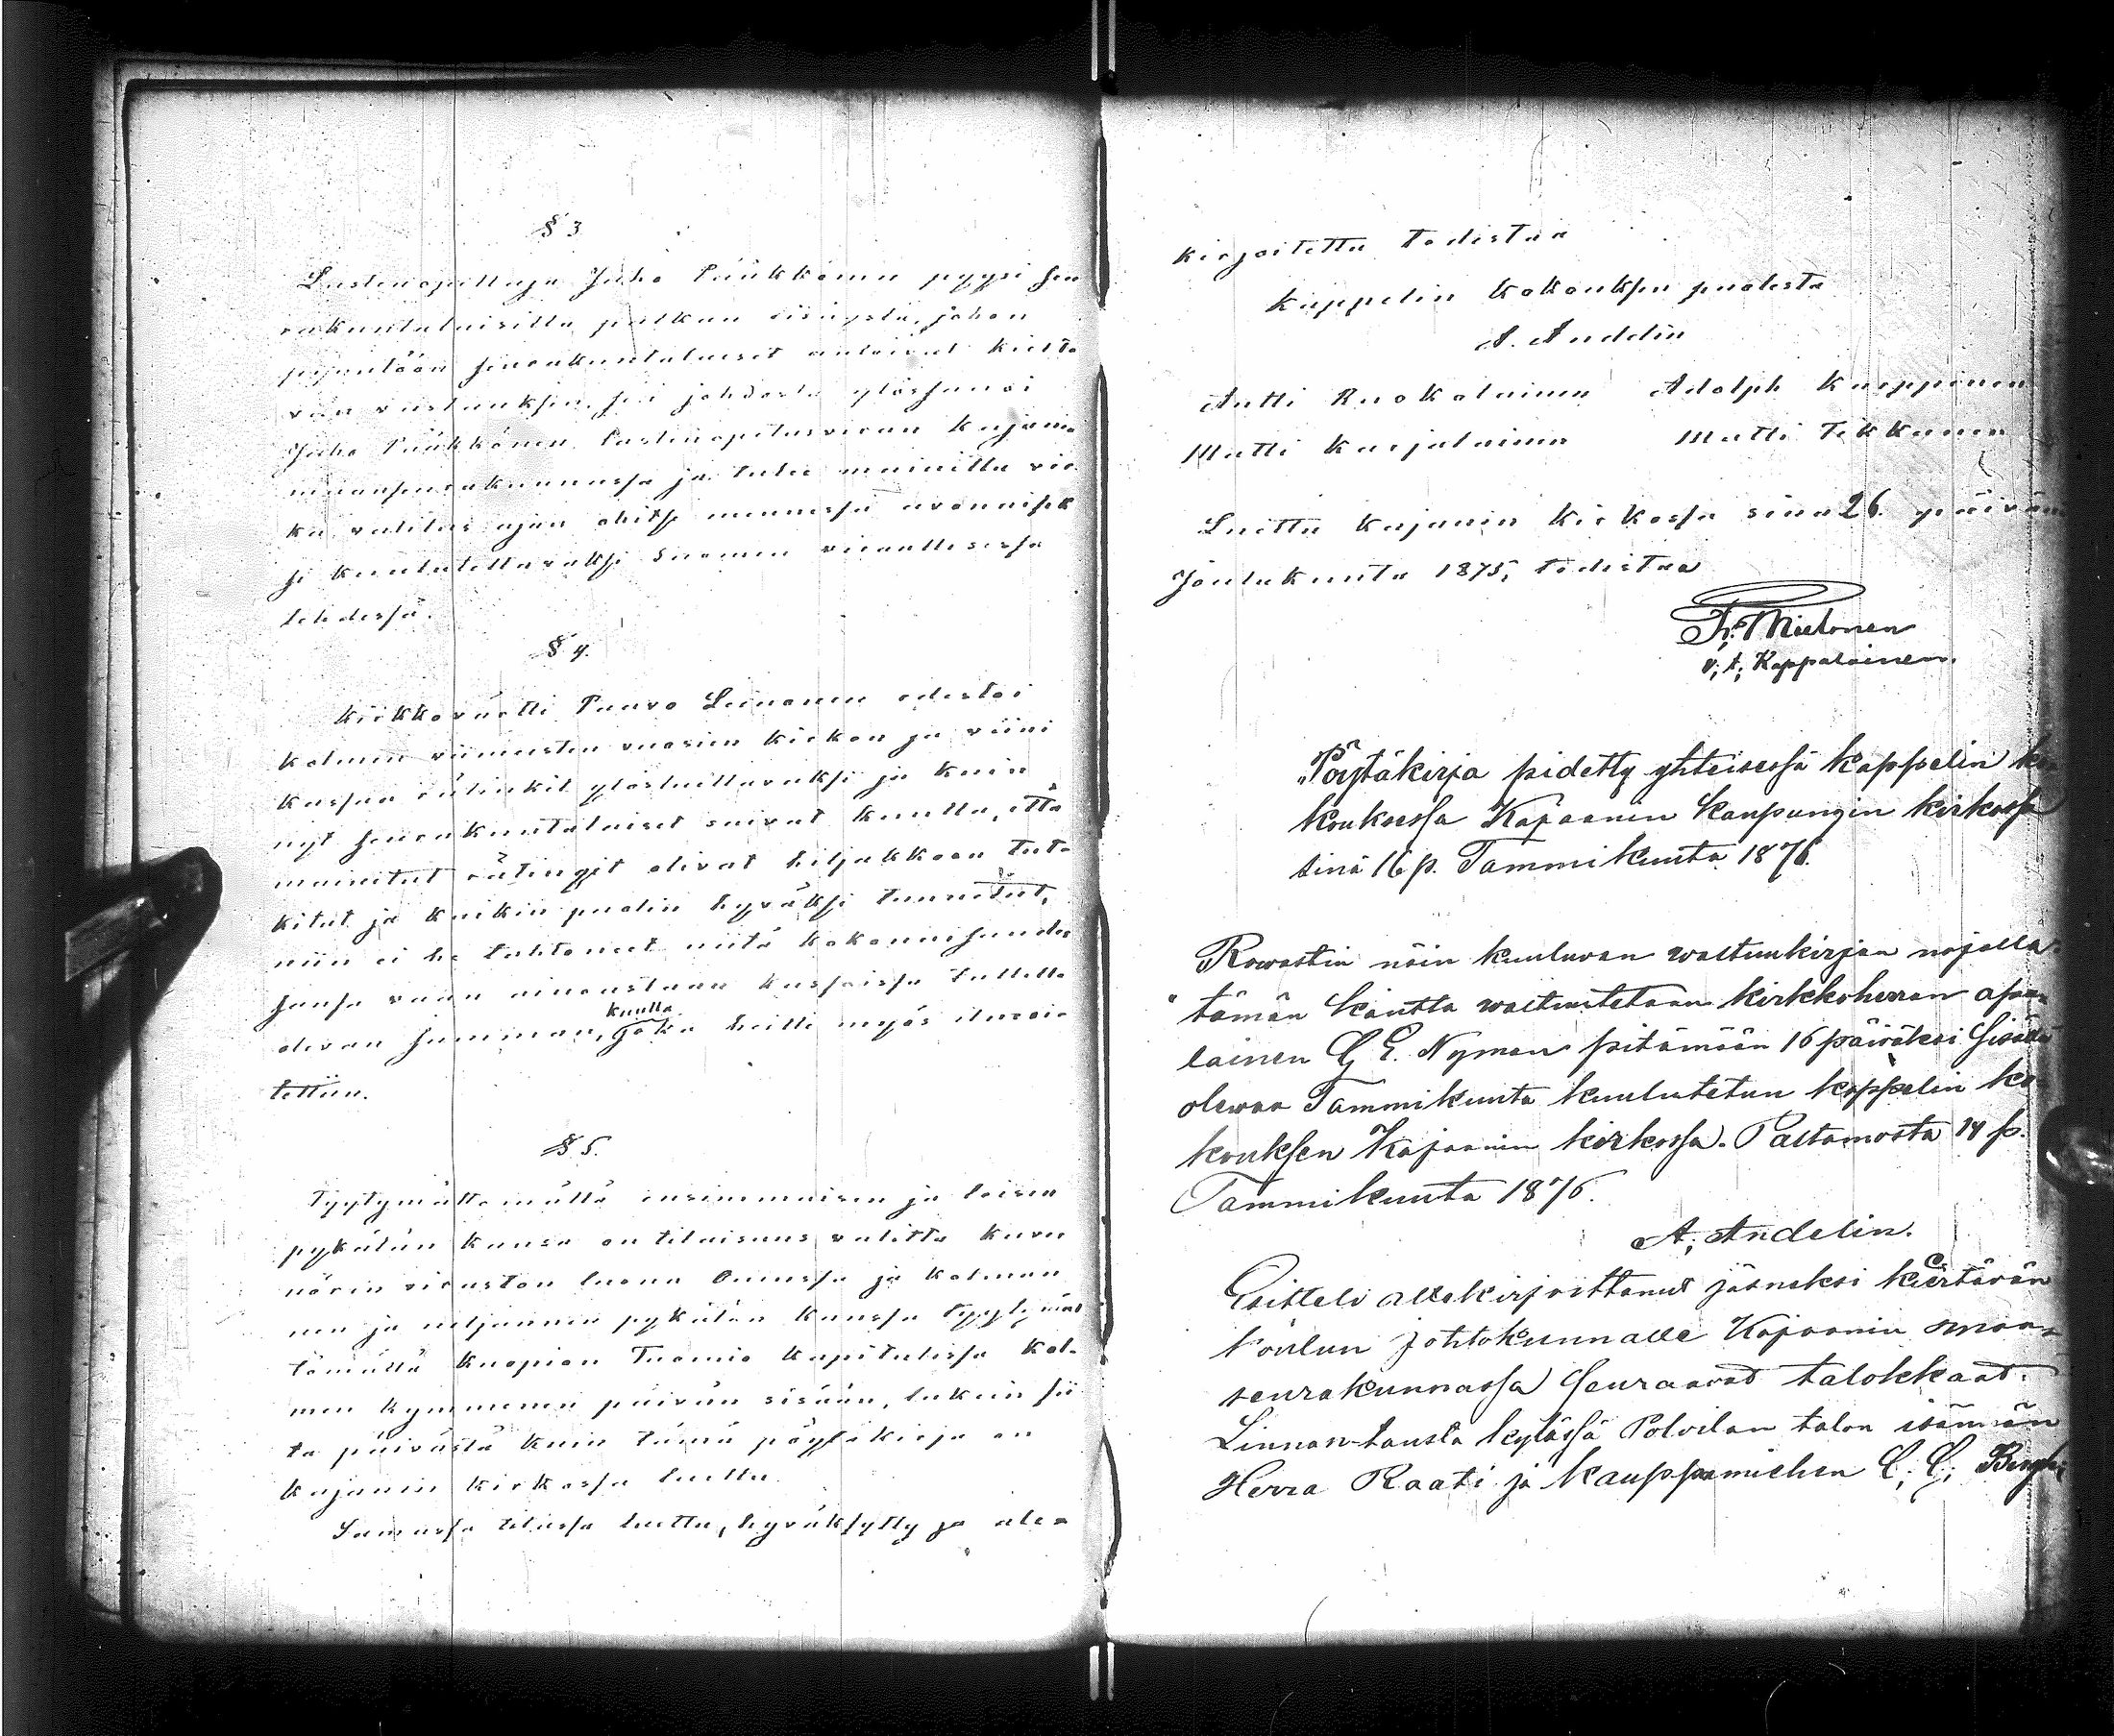 § 3
Lastenopettaja Juho Pääkkönen pyysi seu
rakuntalaisilta palkan lisäystä, johon
pyyntöön seurakuntalaiset antoivat kieltä
vän vastauksen. Sen johdosta ylössanoi
Juho Pääkkönen lastenopetusviran Kajaanin
maanseurakunnassa ja tulee mainittu vir
ka valitus ajan ohitse mennessä avonaisek
si kuulutettavaksi Suomen virallisessa
lehdessä.
§ 4.
Kirkkoväärti Paavo Leinonen edestoi
kolmen viimeisten vuosien kirkon ja viini
kassan rätinkit ylösluettavaksi ja kuin
nyt seurakuntalaiset saivat kuulla, että
mainitut rätingit olivat hiljakkoon tut-
kitut ja kaikin puolin hyväksi tunnetut,
niin ei he tahtoneet niitä kokonaisuudes
sansa vaan ainoastaan kassaissa tallella
olevan summan, kuulla joka heille myös ilmoi-
tettiin.
§ 5.
Tyytymättömällä ensimmäisen ja toisen
pykälän kanssa on tilaisuus valittaa Kuver
nörin viraston luona Oulussa ja kolmannen
nen ja neljännen pykälän kanssa tyytymät
tömällä Kuopion Tuomio Kapitulissa kol-
men kymmenen päivän sisään, lukein sii
tä päivästä kuin tämä pöytäkirja on
Kajanin kirkossa luettu.
Samassa tilassa luettu, hyväksytty ja ale=
kirjoitettu todistaa
Kappelin kokouksen puolesta
A. Andelin
Antti Ruokolainen Adolph Karppinen
Matti Karjalainen Matti Tikkanen
Luettu Kajanin kirkossa sinä 26. päivänä
Joulukuuta 1875, todistaa
Fr. Mietonen
v; t; Kappalainen.
"Pöytäkirja pidetty yhteisessä kappelin ko-
kouksessa Kajaanin kaupungin kirkossa
sinä 16 p. Tammikuuta 1876.
Rowastin näin kuuluvan waltuukirjan nojalla:
"tämän kautta waltuutetaan kirkkoherran apu-
lainen G E. Nyman pitämään 16 päiväksi sisällä
olewaa Tammikuuta kuulutetun kappelin ko
kouksen Kajaanin kirkossa. Paltamosta 14 p.
Tammikuuta 1876.
A; Andelin.
Esitteli allekirjoittanut jäseneksi kiertävän
koulun johtokunnalle Kajaanin maa-
seurakunnassa seuraavat talokkaat:
Linnan-tausta kylässä Polvilan talon isännän
Herra Raati ja kauppamiehen C. C; Bergh;